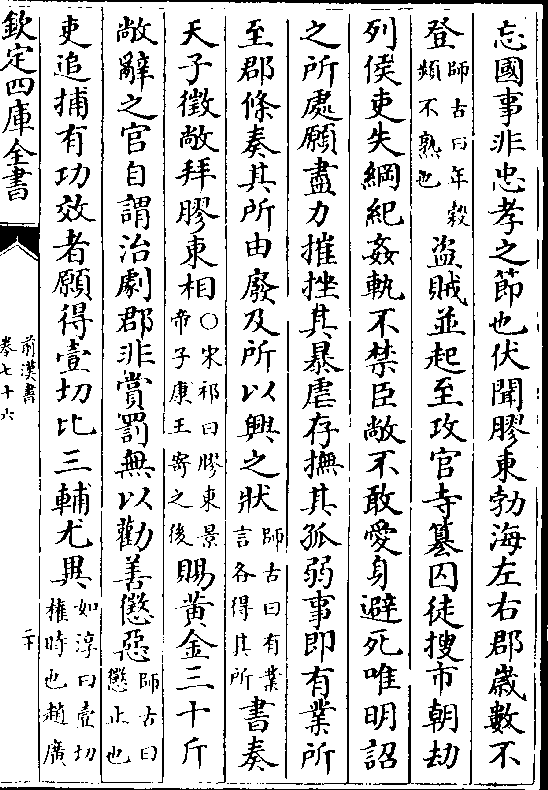 忘國事非忠孝之節也伏聞膠東勃海左右郡歲數不
登師古曰年穀頻不熟也盜賊並起至攻官寺簒囚徒搜市朝劫
列侯吏失綱紀姦軌不禁臣敞不敢愛身避死唯明詔
之所處願盡力摧挫其暴虐存撫其孤弱事即有業所
至郡條奏其所由廢及所以興之狀師古曰有業言各得其所書奏
天子徵敞拜膠東相○宋祁曰膠東景帝子康王寄之後賜黃金三十斤
敞辭之官自謂治劇郡非賞罰無以勸善懲惡師古曰懲止也
吏追捕有功效者願得壹切比三輔尤異如淳曰壹切權時也趙廣
欽定四庫全書
前漢書
卷七十六
二十